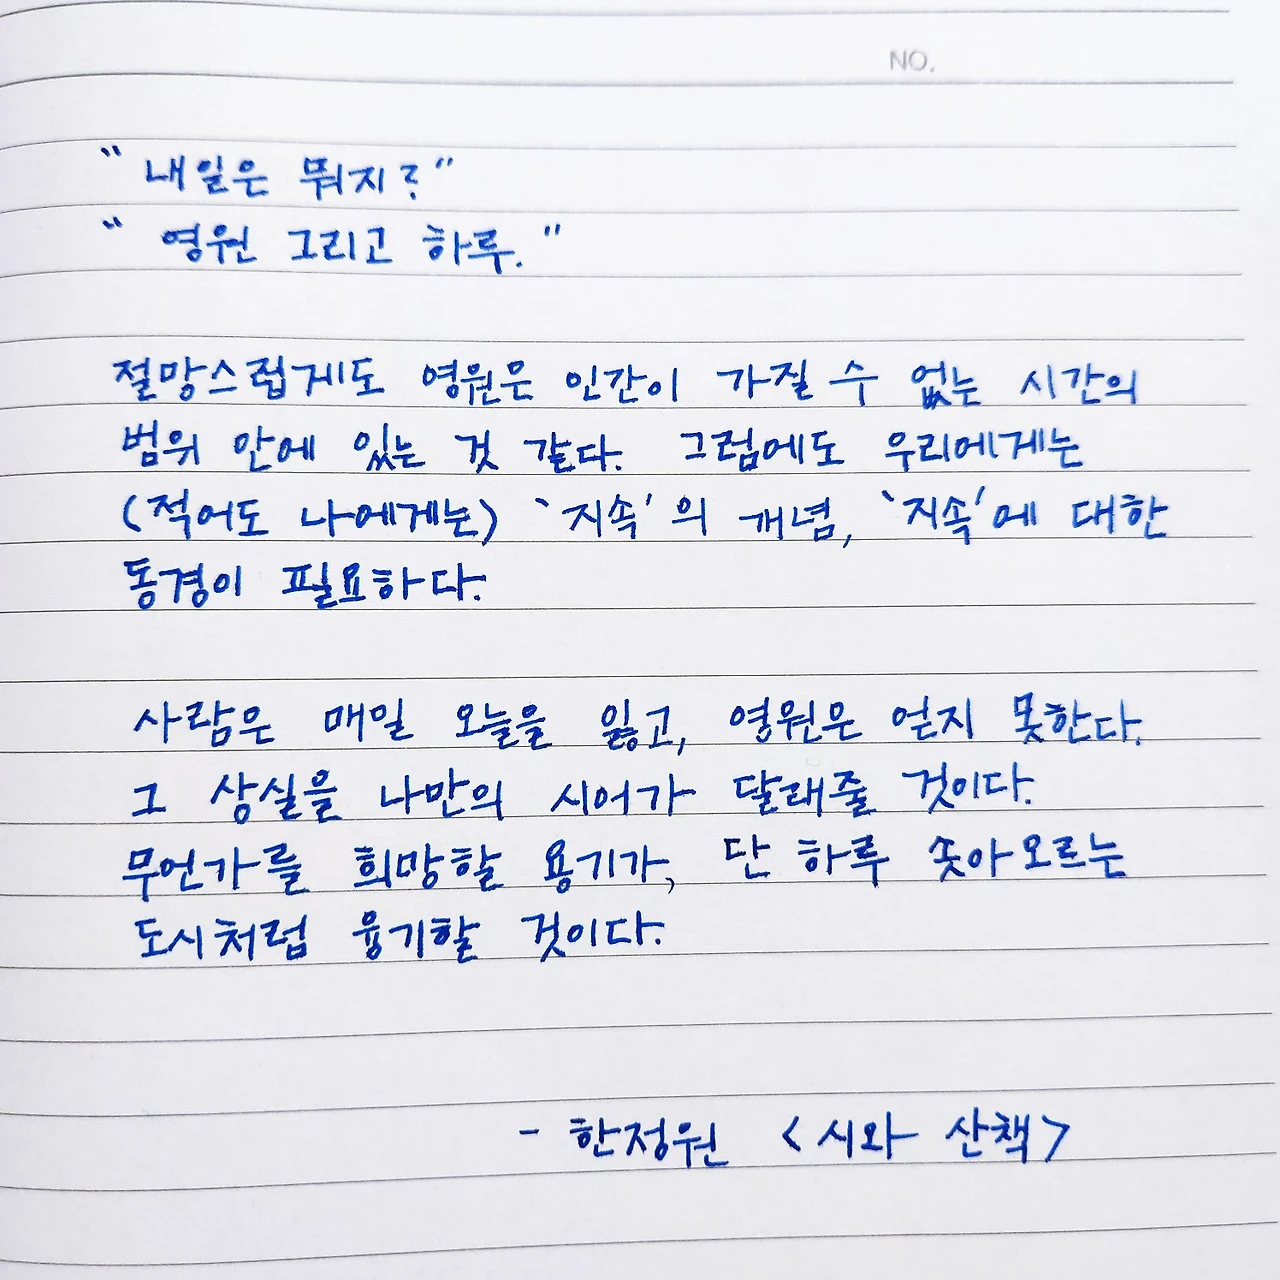 NO.
“ 내일은 뭐지? ”
“ 영원 그리고 하루. ”
절망스럽게도 영원은 인간이 가질 수 없는 시간의
범위 안에 있는 것 같다. 그럼에도 우리에게는
(적어도 나에게는) ‘지속’의 개념, ‘지속’에 대한
동경이 필요하다.
사람은 매일 오늘을 잃고, 영원은 얻지 못한다.
그 상실을 나만의 시어가 달래줄 것이다.
무언가를 희망할 용기가, 단 하루 솟아오르는
도시처럼 융기할 것이다.
- 한정원 <시와 산책>